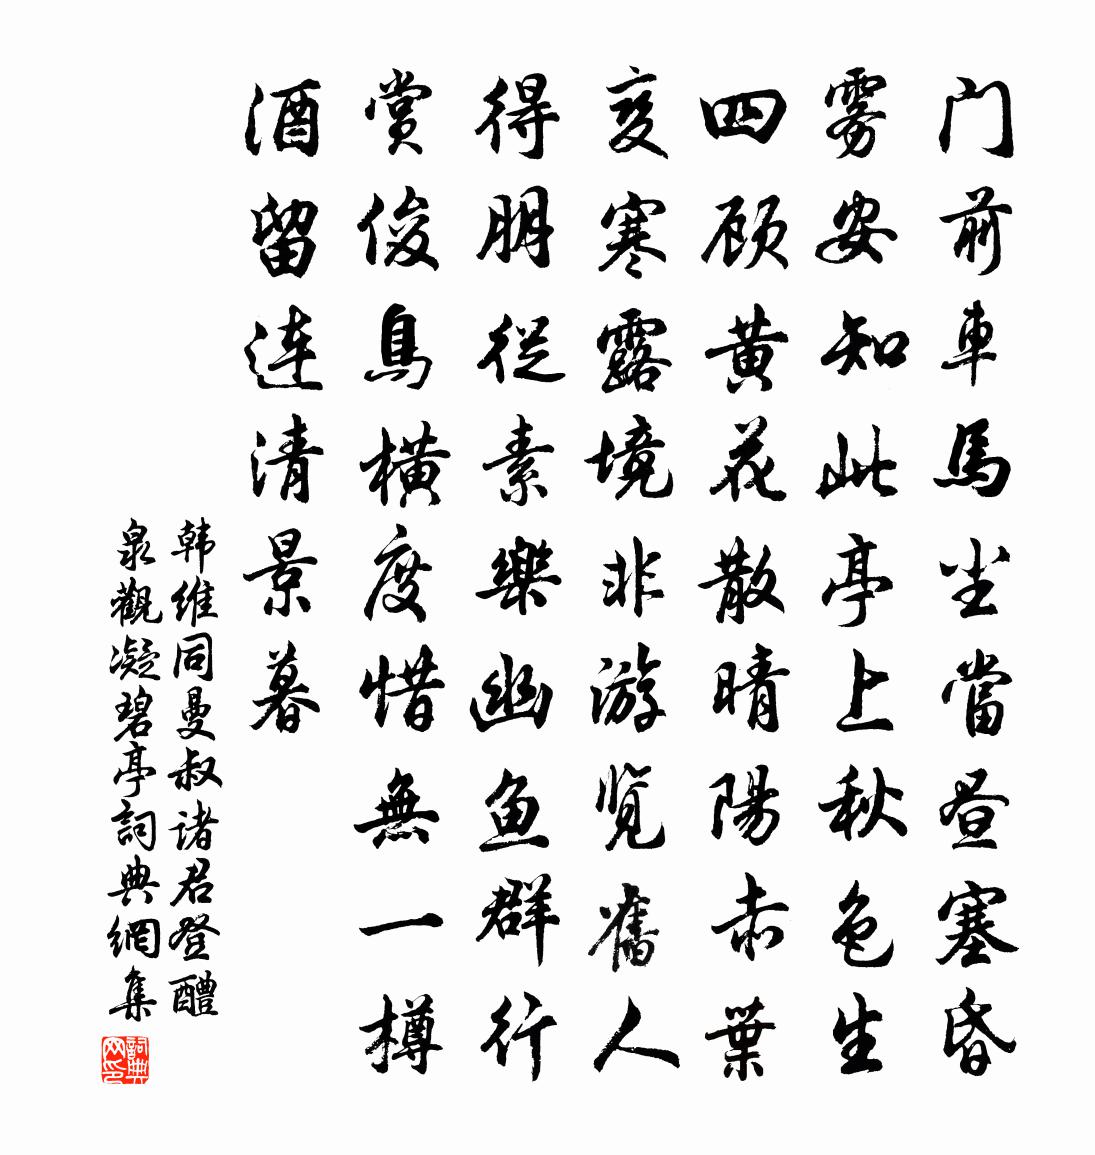 门前車馬尘當昼塞昏
雾安知此亭上秋色生
四顾黄花散晴陽赤葉
变寒露境非游览舊人
得朋従素樂幽鱼群行
赏俊鳥横度惜無一樽
酒留连清景暮
韩维同曼叔诸君登醴
泉觀凝碧亭詞典網集
詞典网印